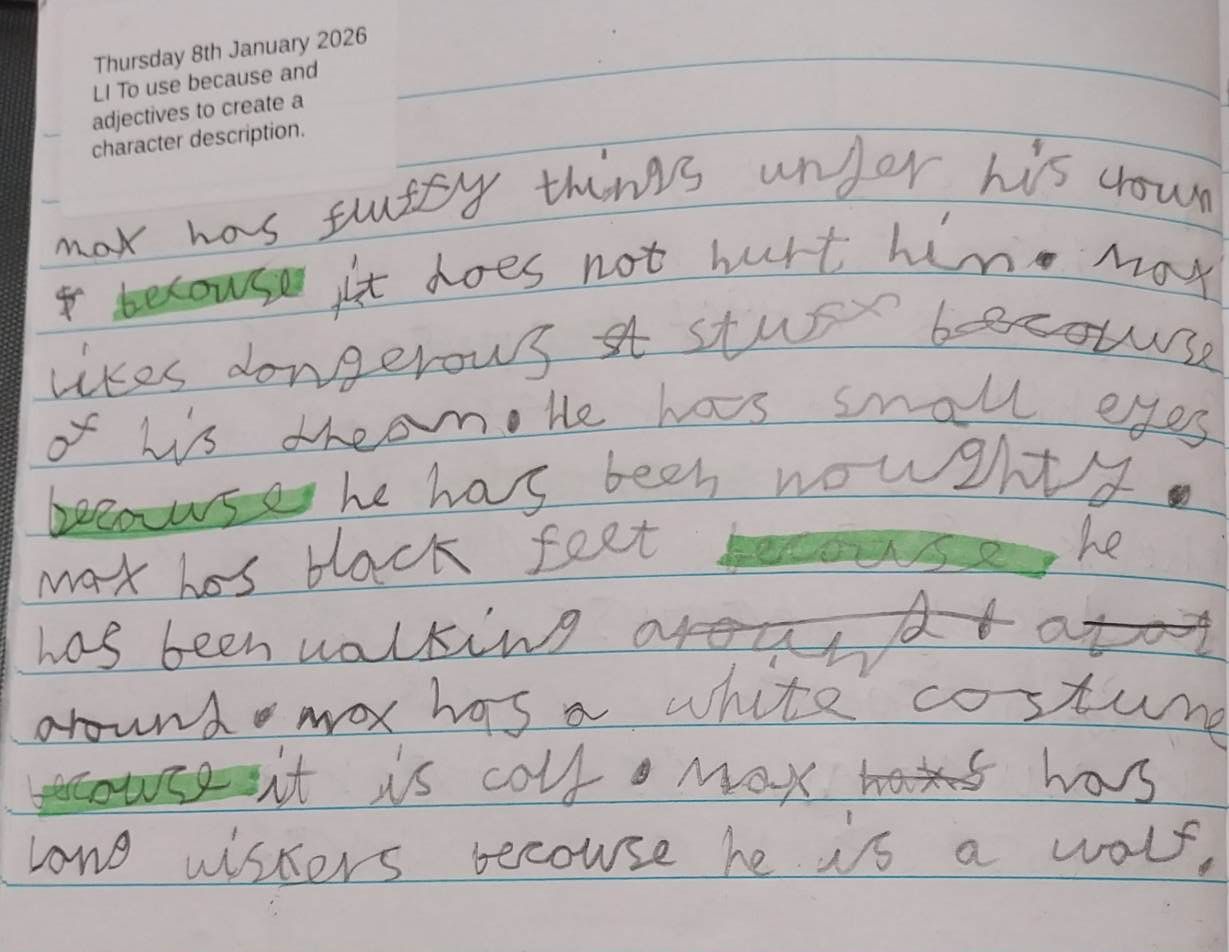 Thursday 8th January 2026
LI To use because and
adjectives to create a
character description.
max has fluffy things under his crown
because it does not hurt him. Max
likes dangerous st stuff because
of his dream. He has small eyes
because he has been noughty.
max has black feet because he
has been walking around
around. max has a white costume
because it is cold. Max has
long wiskers because he is a wolf.